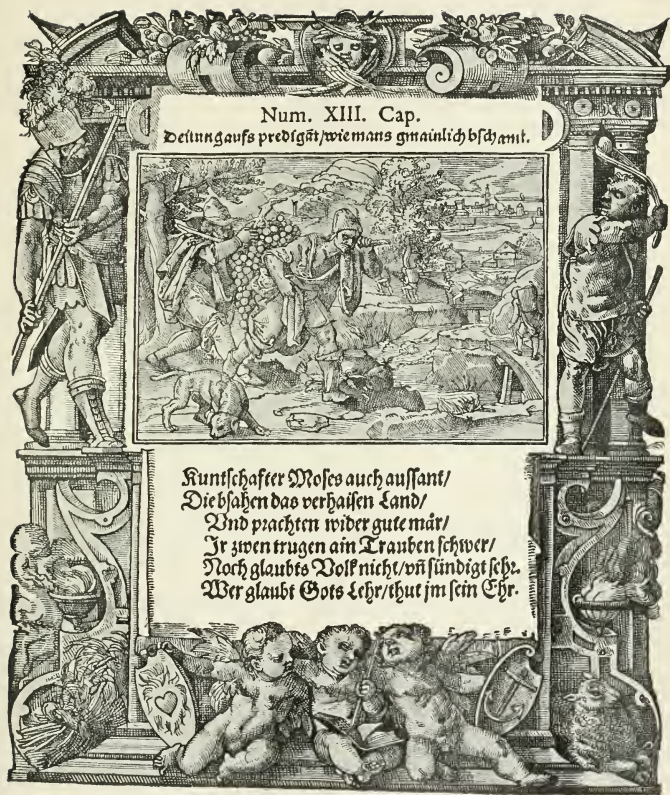 Num. XIII. Cap.
Deitung aufs predigāt/wie mans gmainlich bschamt.
Kuntschafter Moses auch aussant/
Die bsahen das verhaisen Land/
Vnd prachten wider gute mår/
Jr zwen trugen ain Trauben schwer/
Noch glaubts Volk nicht/vñ sündigt sehr.
Wer glaubt Gots Lehr/thut jm sein Ehr.